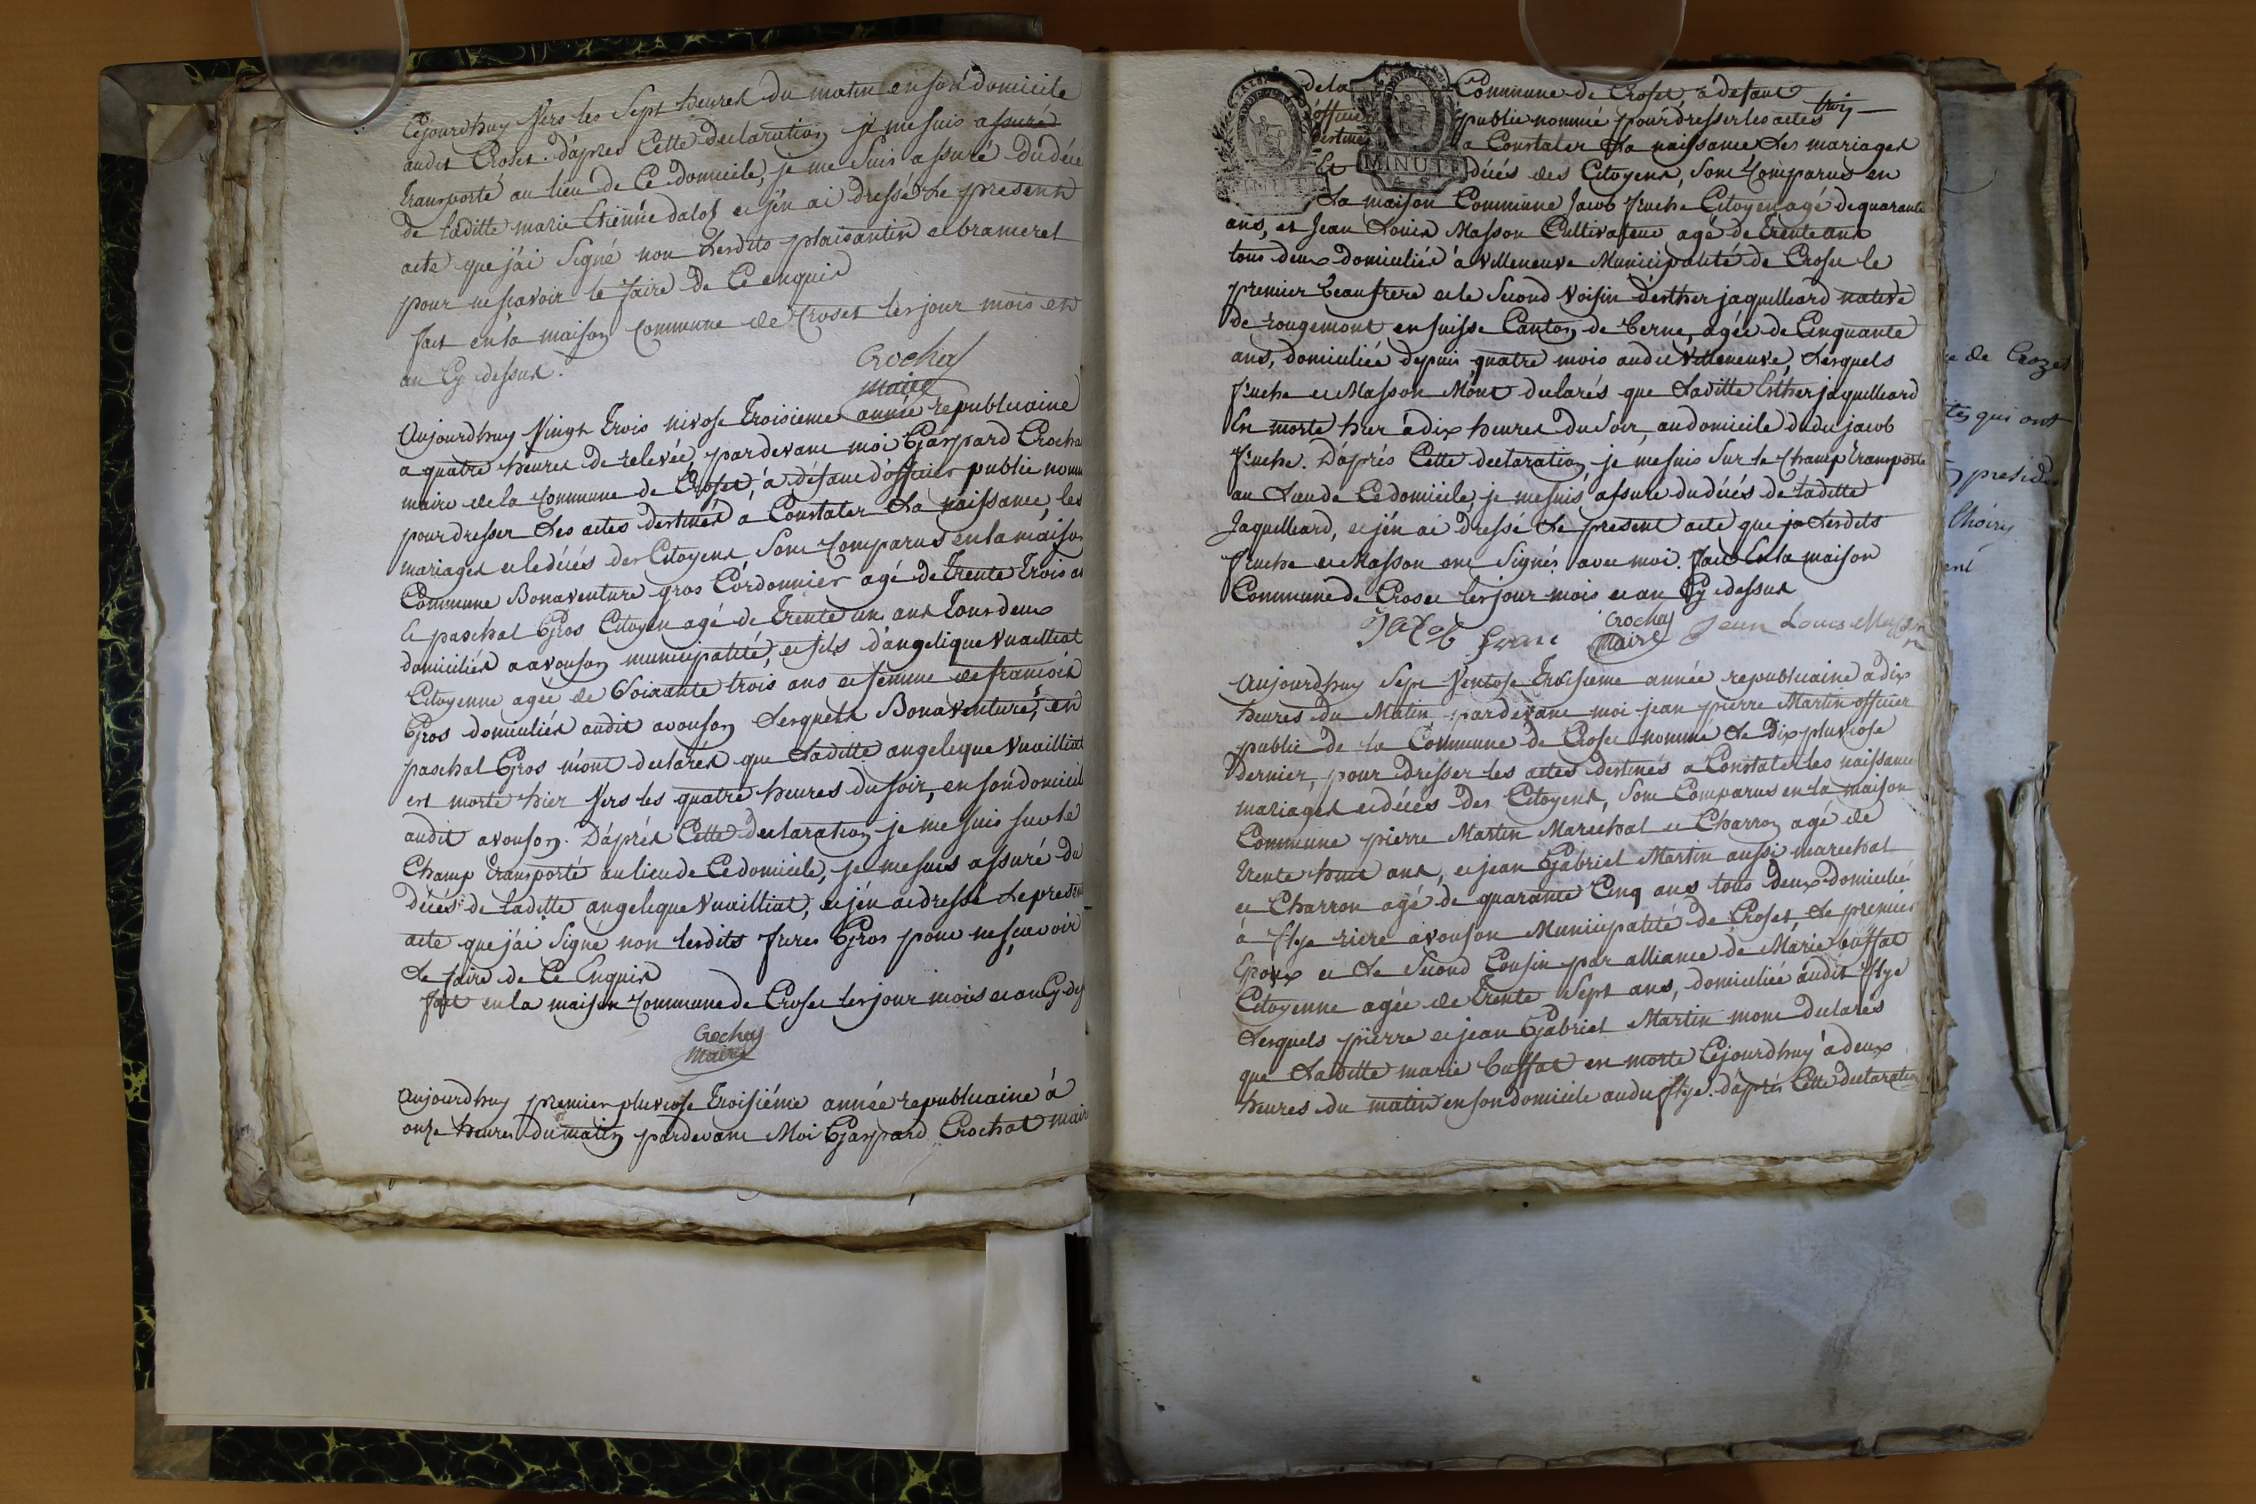 Cejourdhuy Vers les Sept heures du matin en son domicile
audit Croset. D'apres Cette declaration je me suis assuré
transporté au lieu de Ce domicile, je me Suis assuré du décé
de laditte marie Etienne dalos et j'en ai dressé Le present
acte que j'ai Signé non Lesdits plaisantin et brameret
pour ne scavoir le faire de Ce enquis
fait en la maison commune de Croset les jour mois et
an Cy dessus.
Crochat
maire
Aujourdhuy Vingt Trois nivose Troisieme année republicaine
a quatre heures de relevée, pardevant moi Gaspard Crocha
maire de la Commune de Croset, à défaut d'officier public nomm
pour dresser Les actes destinés a Constater La naissance, les
mariages et le décés des Citoyens Sont Comparus en la maison
Commune Bonaventure gros Cordonnier agé de Trente Trois an
et paschal Gros Citoyen agé de Trente un ans Tous deux
domiciliés a avouson municipalité, et fils d'angelique Vuailliat
Citoyenne agée de Soixante trois ans et femme de francois
Gros domiciliés audit avouson Lesquels Bonaventure, et
paschal Gros m'ont declarés que Laditte angelique Vuailliat
est morte hier Vers les quatre heures du soir, en son domicil
audit avouson. D'aprés Cette declaration je me suis sur le
Champ Transporté au lieu de Ce domicile, je me suis assuré du
décés de laditte angelique Vuailliat, et j'en ai dressé Le present
acte que j'ai Signé non lesdits freres Gros pour ne scavoir
Le faire de Ce Enquis
fait en la maison Commune de Croset les jour mois et an Cy des
Crochat
maire
Aujourdhuy premier pluviose Troisiéme année republicaine à
onze heures du matin pardevant Moi Gaspard Crochat mair
de la Commune de Croset à defaut
d'officier public nommé pour dresser les actes trois
destinés a Constater La naissance Les mariages
MINUTE
Et décés des Citoyens, Sont Comparus en
La maison Commune Jacob fruche Citoyen agé de quarante
ans, et Jean Louis Masson Cultivateur agé de Trente ans
tous deux domiciliés à Villeneuve Municipalité de Croset le
premier beaufrere et le Second Voisin d'esther jaquilleard native
de rougemont en suisse Canton de berne, agée de Cinquante
ans, domiciliée depuis quatre mois audit Villeneuve, Lesquels
fruche et Masson M'ont declarés que Laditte Esther jaquilleard
En morte hier à dix heures du Soir, au domicile dudit jacob
fruche. D'aprés Cette declaration je me suis Sur le Champ Transporté
au Lieu de Ce domicile, je me suis assuré du décés de laditte
Jaquilleard, et j'en ai dressé Le present acte que Lesdits
fruche et Masson ont Signés avec moi. fait En la maison
Commune de Croset les jour mois et an Cy dessus
Jacob Crochat Jean Louis Masson
maire
Aujourdhuy Sept Ventose Troisieme année republicaine à dix
heures du Matin pardevant moi jean pierre Martin officier
public de la Commune de Croset nommé Le Dix pluviose
Dernier, pour dresser les actes destinés a Constater les naissance
mariages et décés des Citoyens, Sont Comparus en la maison
Commune pierre Martin Maréchal et Charron agé de
trente huit ans, et jean Gabriel Martin aussi marechal
et Charron agé de quarante Cinq ans tous deux domicilié
à flye riere avouson Municipalité de Croset Le premier
Epoux et Le Second Cousin par alliance de Marie buffat
Citoyenne agée de Trente Sept ans, domiciliée audit flye
Lesquels pierre et jean Gabriel Martin m'ont declarés
que Laditte marie buffat en morte Cejourdhuy à deux
heures du matin en son domicile audit flye. D'aprés Cette declaration
de Crozet
qui ont